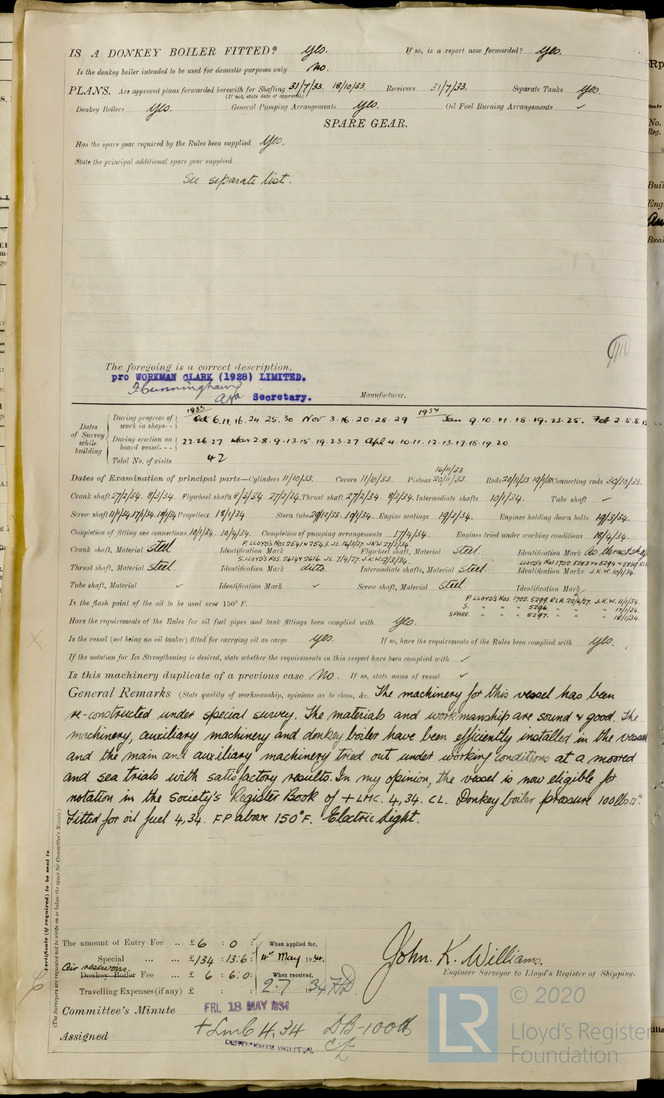 IS A DONKEY BOILER FITTED? Yes. If so, is a report now forwarded? Yes.
Is the donkey boiler intended to be used for domestic purposes only No.
PLANS. Are approved plans forwarded herewith for Shafting 31/7/33. 18/10/33. Receivers 31/7/33. Separate Tanks Yes.
(If not, state date of approval)
Donkey Boilers Yes. General Pumping Arrangements Yes. Oil Fuel Burning Arrangements ✓
SPARE GEAR.
Has the spare gear required by the Rules been supplied Yes.
State the principal additional spare gear supplied
See separate list.
The foregoing is a correct description,
pro WORKMAN CLARK (1928) LIMITED.
Secretary.
Manufacturer.
Dates of Survey while building
During progress of work in shops - - 6.11.16.24.25.30 Nov 3.16.20.28.29 1934 Jan 9.10.11.18.19.23.25. Feb 2.5.8.12
During erection on board vessel - - - 22.26.27 Mar 2.8.9.13.15.19.23.27 Apl 4.10.11.12.13.17.18.19.20
Total No. of visits 42
Dates of Examination of principal parts—Cylinders 11/10/33. Covers 11/10/33. Pistons 20/11/33. Rods Connecting rods 30/10/33.
Crank shaft 27/2/34. Flywheel shaft 27/2/34. Thrust shaft 27/2/34. Intermediate shafts 10/1/34. Tube shaft ✓
Screw shaft Propellers 18/1/34 Stern tube 19/1/34. Engine seatings 19/2/34. Engines holding down bolts 19/3/34.
Completion of fitting sea connections 10/1/34. 10/4/34. Completion of pumping arrangements 17/4/34. Engines tried under working conditions 18/4/34.
Crank shaft, Material Steel Identification Mark Flywheel shaft, Material Steel. Identification Mark As thrust shaft
Thrust shaft, Material Steel. Identification Mark ditto Intermediate shafts, Material Steel Identification Marks
Tube shaft, Material ✓ Identification Mark ✓ Screw shaft, Material Steel Identification Mark
Is the flash point of the oil to be used over 150° F.
SPARE
Have the requirements of the Rules for oil fuel pipes and tank fittings been complied with Yes.
Is the vessel (not being an oil tanker) fitted for carrying oil as cargo Yes. If so, have the requirements of the Rules been complied with Yes.
If the notation for Ice Strengthening is desired, state whether the requirements in this respect have been complied with ✓
Is this machinery duplicate of a previous case No. If so, state name of vessel ✓
General Remarks (State quality of workmanship, opinions as to class, &c. The machinery for this vessel has been
re-constructed under special survey. The materials and workmanship are sound & good. The
machinery, auxiliary machinery and donkey boiler have been efficiently installed in the vessel
and the main and auxiliary machinery tried out under working conditions at a moored
and sea trials with satisfactory results. In my opinion, the vessel is now eligible for
notation in the Society's Register Book of + LMC. 4,34. CL. Donkey boiler pressure 100lbs□".
Fitted for oil fuel 4,34. FP above 150°F. Electric light.
Certificate (if required) to be sent to
(The Surveyors are requested not to write on or below the space for Committee's Minute.)
The amount of Entry Fee .. £ 6 : 0 : When applied for,
Special .. £ 134 : 13:6 : May 1934.
Air reservoirs
Donkey Boiler Fee .. £ 6 : 6:0: When received,
Travelling Expenses (if any) £ : : 2.7.34
John. K. Williams.
Engineer Surveyor to Lloyd's Register of Shipping.
Committee's Minute FRI. 18 MAY 1934
Assigned + Lmc 4.34 DB-100lb
CL
LR
© 2020
Lloyd's Register
Foundation